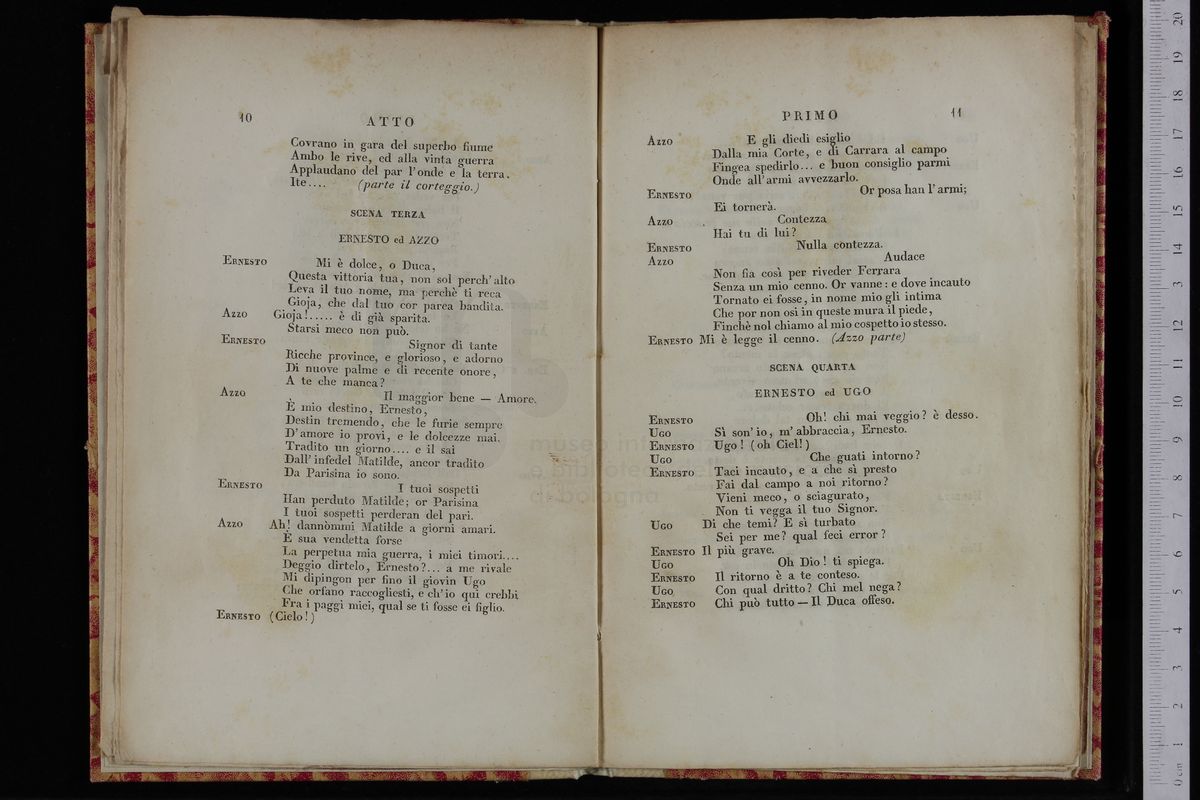 10
ATTO
Covrano in gara del superbo fiume
Ambo le rive, ed alla vinta guerra
Applaudano del par l'onde e la terra.
Ite.... (parte il corteggio.)
SCENA TERZA
ERNESTO ed AZZO
ERNESTO Mi è dolce, o Duca,
Questa vittoria tua, non sol perch'alto
Leva il tuo nome, ma perchè ti reca
Gioja, che dal tuo cor parea bandita.
AZZO Gioja!..... è di già sparita.
Starsi meco non può.
ERNESTO Signor di tante
Ricche province, e glorioso, e adorno
Di nuove palme e di recente onore,
A te che manca?
AZZO Il maggior bene — Amore.
È mio destino, Ernesto,
Destin tremendo, che le furie sempre
D'amore io provi, e le dolcezze mai.
Tradito un giorno.... e il sai
Dall'infedel Matilde, ancor tradito
Da Parisina io sono.
ERNESTO I tuoi sospetti
Han perduto Matilde; or Parisina
I tuoi sospetti perderan del pari.
AZZO Ah! dannòmmi Matilde a giorni amari.
È sua vendetta forse
La perpetua mia guerra, i miei timori....
Deggio dirtelo, Ernesto?... a me rivale
Mi dipingon per fino il giovin Ugo
Che orfano raccogliesti, e ch'io qui crebbi
Fra i paggi miei, qual se ti fosse ei figlio.
ERNESTO (Cielo!)
PRIMO
11
AZZO E gli diedi esiglio
Dalla mia Corte, e di Carrara al campo
Fingea spedirlo... e buon consiglio parmi
Onde all'armi avvezzarlo.
ERNESTO Or posa han l'armi;
Ei tornerà.
AZZO Contezza
Hai tu di lui?
ERNESTO Nulla contezza.
AZZO Audace
Non fia così per riveder Ferrara
Senza un mio cenno. Or vanne: e dove incauto
Tornato ei fosse, in nome mio gli intima
Che por non osi in queste mura il piede,
Finchè nol chiamo al mio cospetto io stesso.
ERNESTO Mi è legge il cenno. (Azzo parte)
SCENA QUARTA
ERNESTO ed UGO
ERNESTO Oh! chi mai veggio? è desso.
UGO Sì son'io, m'abbraccia, Ernesto.
ERNESTO Ugo! (oh Ciel!)
UGO Che guati intorno?
ERNESTO Taci incauto, e a che sì presto
Fai dal campo a noi ritorno?
Vieni meco, o sciagurato,
Non ti vegga il tuo Signor.
UGO Di che temi? E sì turbato
Sei per me? qual feci error?
ERNESTO Il più grave.
UGO Oh Dio! ti spiega.
ERNESTO Il ritorno è a te conteso.
UGO Con qual dritto? Chi mel nega?
ERNESTO Chi può tutto — Il Duca offeso.